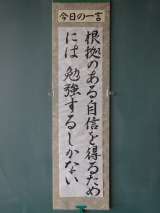 今日の一言
根拠のある自信を得るため
には 勉強するしかない